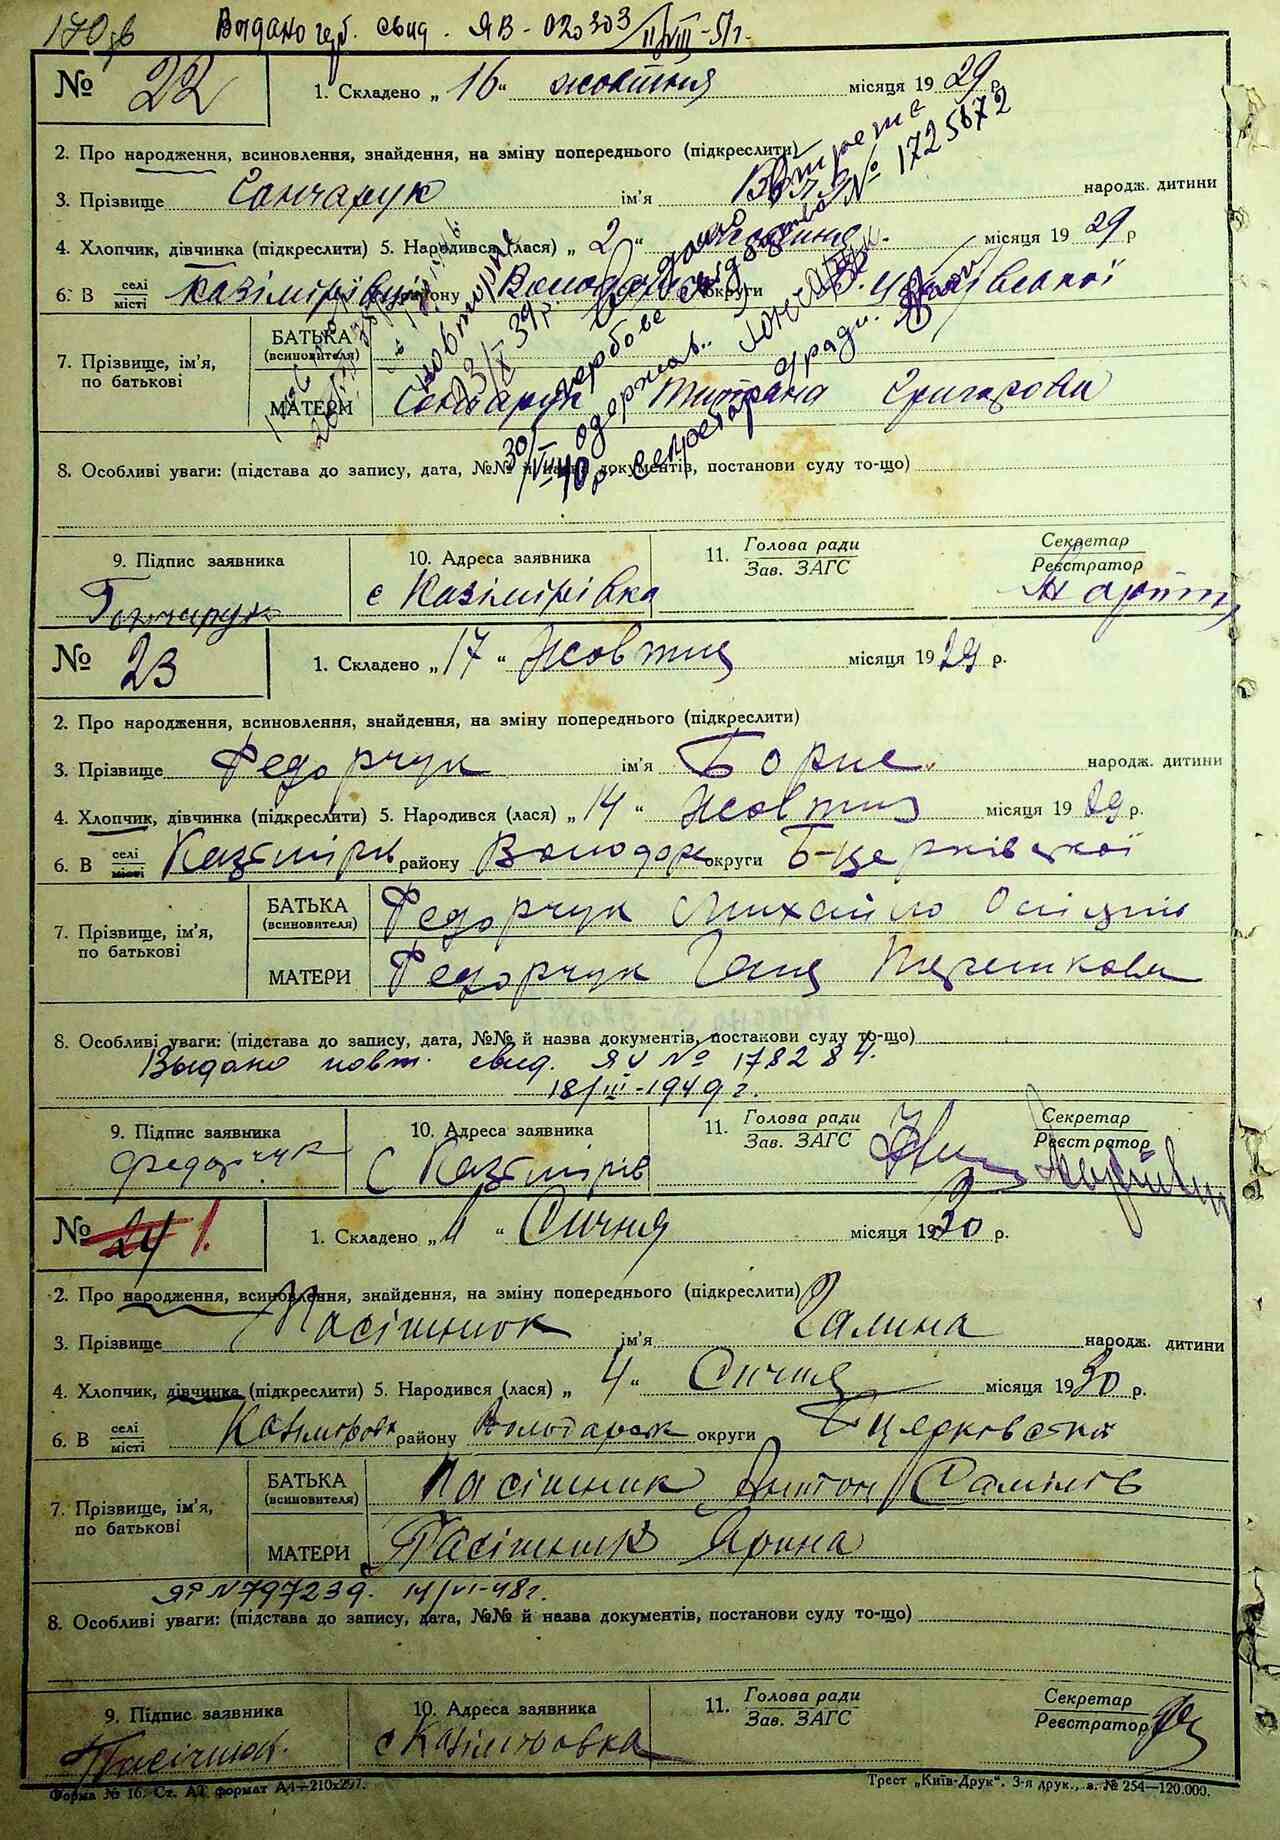 170 зв Выдано герб. свид. ЯВ-020303 11/VIII-51г.
№ 22 1. Складено „16“ жовтня місяця 1929 р.
2. Про народження, всиновлення, знайдення, на зміну попереднього (підкреслити)
3. Прізвище Гончарук ім'я народж. дитини
4. Хлопчик, дівчинка (підкреслити) 5. Народився (лася) „2“ місяця 1929 р
6. В селі/місті Казімірівці району Володар округи Б. Церківської
7. Прізвище, ім'я, по батькові
БАТЬКА (всиновителя)
МАТЕРИ Гончарук Титяна Григорова
повторне
23/X 39р.
Видано втретє
гербове свідоцтво № 1725672
30/VII 40 р одержав.. Гончарук.
Секретар с/ради.
8. Особливі уваги: (підстава до запису, дата, №№ й назва документів, постанови суду то-що)
9. Підпис заявника Гончарук
10. Адреса заявника с Казімірівка
11. Голова ради/Зав. ЗАГС
Секретар/Реєстратор
№ 23 1. Складено „17“ Жовтня місяця 1929 р.
2. Про народження, всиновлення, знайдення, на зміну попереднього (підкреслити)
3. Прізвище Федорчук ім'я Борис. народж. дитини
4. Хлопчик, дівчинка (підкреслити) 5. Народився (лася) „14“ Жовтня місяця 1929 р.
6. В селі/місті Казімірів району Володарс округи Б-церківської
7. Прізвище, ім'я, по батькові
БАТЬКА (всиновителя) Федорчук Михайло
МАТЕРИ Федорчук Ганя Терешкова
8. Особливі уваги: (підстава до запису, дата, №№ й назва документів, постанови суду то-що)
Выдано повт. свид. ЯУ № 178284.
18/III-1949 г.
9. Підпис заявника Федорчук
10. Адреса заявника с Казімірів
11. Голова ради/Зав. ЗАГС
Секретар/Реєстратор
№ 24 1. 1. Складено „11“ Січня місяця 1930 р.
2. Про народження, всиновлення, знайдення, на зміну попереднього (підкреслити)
3. Прізвище Пасішнюк ім'я Галина народж. дитини
4. Хлопчик, дівчинка (підкреслити) 5. Народився (лася) „4“ Січня місяця 1930 р.
6. В селі/місті Казіміровка району Володарск округи Бцярковска
7. Прізвище, ім'я, по батькові
БАТЬКА (всиновителя) Пасішник Антон Самілів
МАТЕРИ Пасішник Ярина
ЯР №797239. 14/VI-48г.
8. Особливі уваги: (підстава до запису, дата, №№ й назва документів, постанови суду то-що)
9. Підпис заявника Пасічник.
10. Адреса заявника с Казіміровка
11. Голова ради/Зав. ЗАГС
Секретар/Реєстратор
Форма № 16. Ст. А7 формат А4—210х297.
Трест „Київ-Друк“. 3-я друк., з. № 254—120.000.